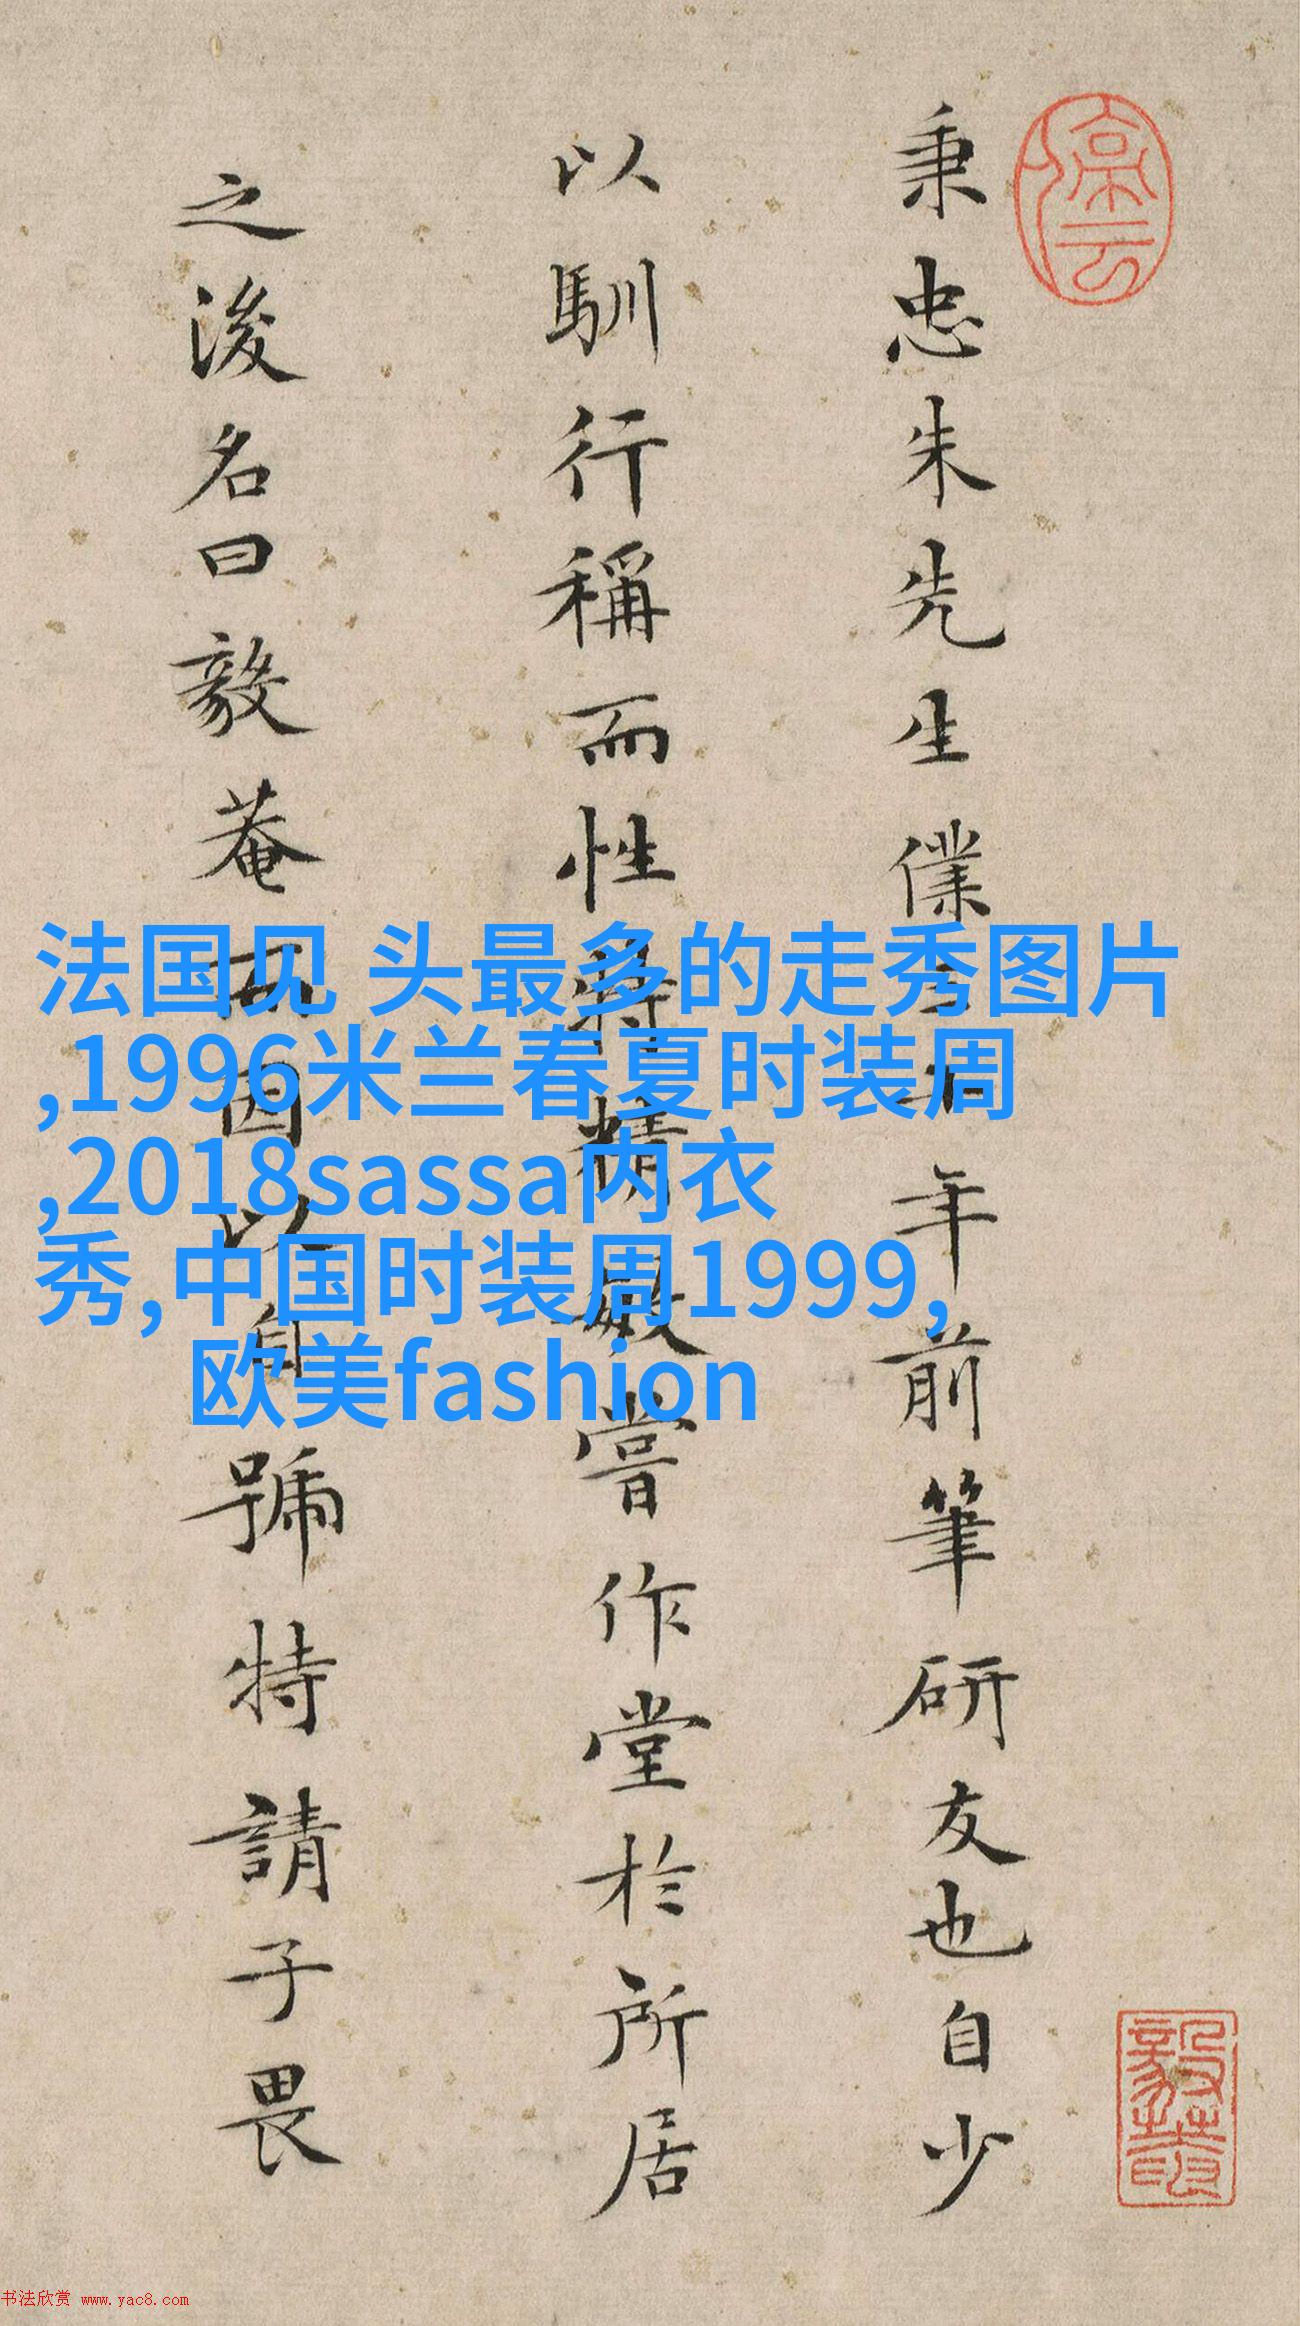 秉忠朱先生僕三十年前筆研友也自少
以馴行稱而性特精敏嘗作堂於所居
之後名曰毅菴而因以自號特請予畏
法国见 头最多的走秀图片
,1996米兰春夏时装周
,2018sassa内衣
秀,中国时装周1999,
欧美fashion
书法欣赏 www.yac8.com